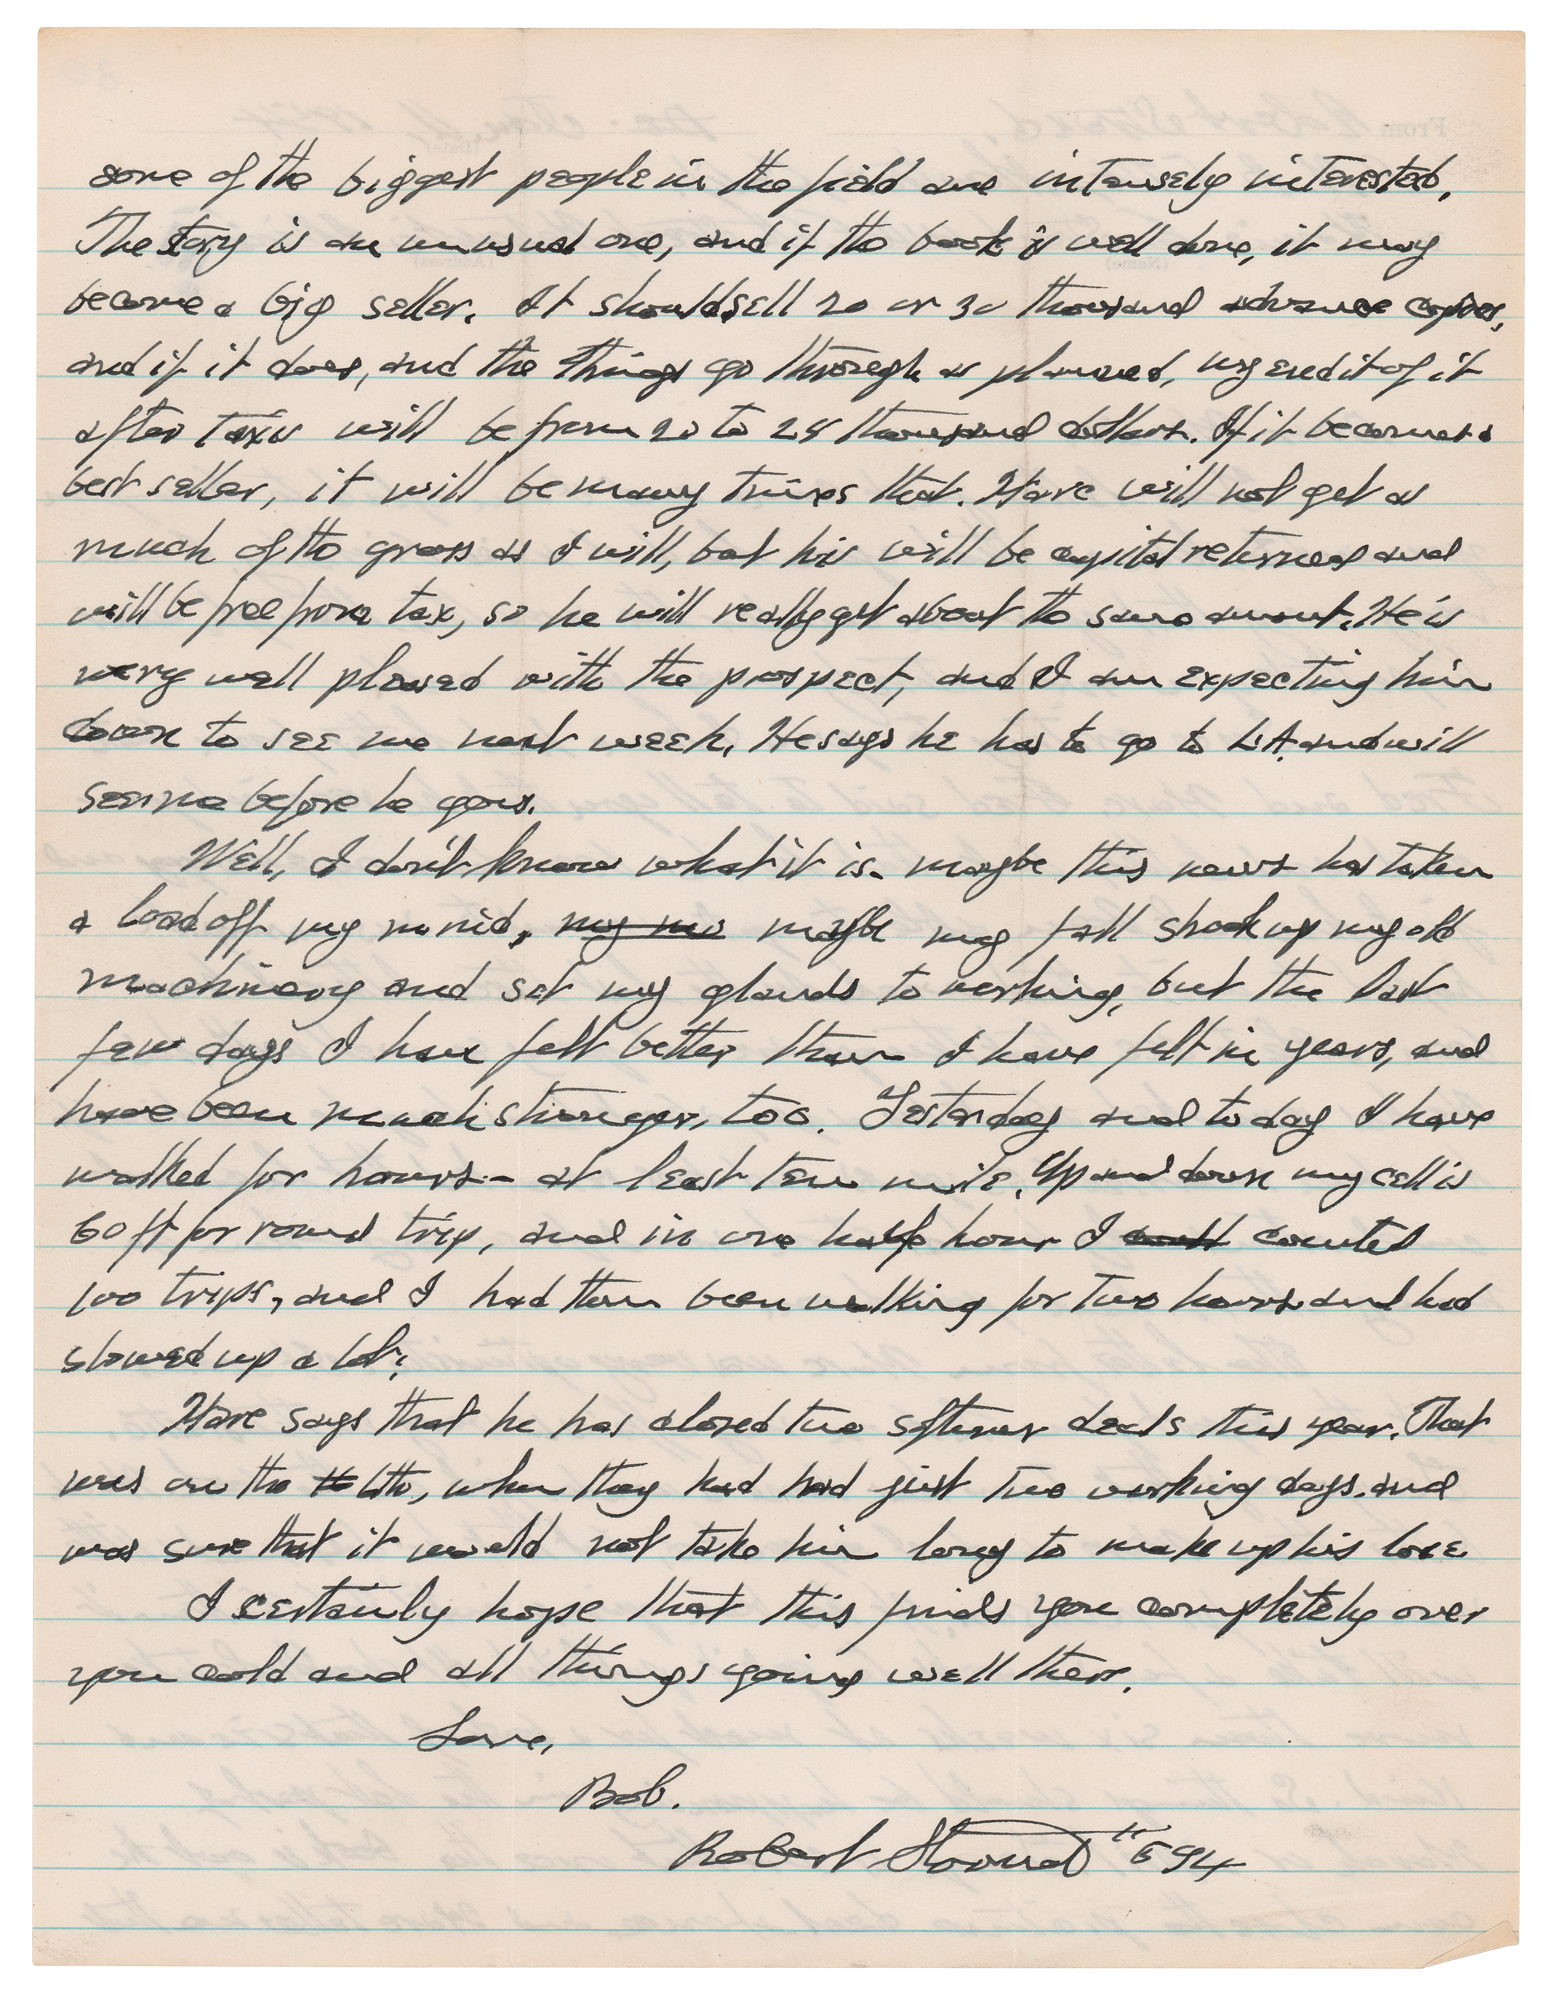 some of the biggest people in the field are intensely interested.
The story is an unusual one, and if the book is well done, it may
become a big seller. It should sell 20 or 30 thousand advance copies,
and if it does, and the things go through as planned, my end it of it
after taxes will be from 20 to 25 thousand dollars. If it becomes a
best seller, it will be many times that. Marc will not get as
much of the gross as I will, but his will be capital returned and
will be free from tax, so he will really get about the same amount. He is
very well pleased with the prospect, and I am expecting him
down to see me next week. He says he has to go to L.A. and will
see me before he goes.
Well, I don't know what it is. maybe this news has taken
a load off my mind, my mi maybe my fall shook up my old
machinery and set my glands to working, but the last
few days I have felt better than I have felt in years, and
have been much stronger, too. Yesterday and today I have
walked for hours - at least ten mile. Up and down my cell is
60 ft for round trip, and in one half hour I counted
100 trips, and I had then been walking for two hours and had
slowed up a lot.
Marc says that he has closed two softener deals this year. That
was on the 6th, when they had had just two working days. and
was sure that it would not take him long to make up his lose
I certainly hope that this finds you completely over
you cold and all things going well there.
Love,
Bob.
Robert Stroud #594